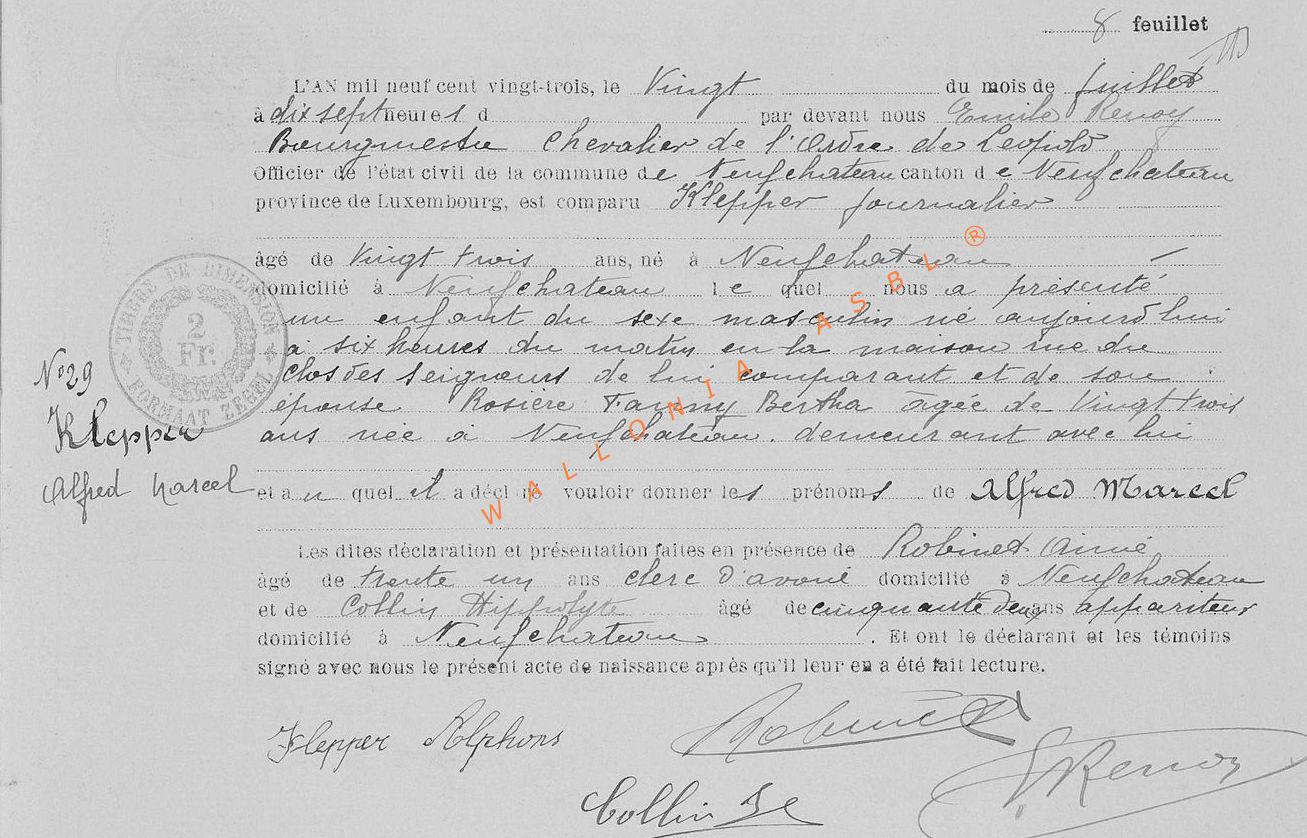 8 feuillet
L'AN mil neuf cent vingt-trois, le Vingt du mois de Juillet
à dix sept heures d par devant nous Emile Renoy
Bourgmestre Chevalier de l'Ordre de Leopold
Officier de l'état civil de la commune de Neufchateau canton de Neufchateau
province de Luxembourg, est comparu Klepper journalier
âgé de Vingt trois ans, né à Neufchateau
domicilié à Neufchateau le quel nous a présenté
un enfant du sexe masculin né aujourd'hui
à six heures du matin en la maison rue du
Clos des Seigneurs de lui comparant et de son
épouse Rosière Fanny Bertha âgée de Vingt trois
ans née à Neufchateau. demeurant avec lui
et au quel il a déclaré vouloir donner les prénoms de Alfred Marcel
Les dites déclaration et présentation faites en présence de Robinet Aimé
âgé de trente un ans clerc d'avoué domicilié à Neufchateau
et de Collin Hippolyte âgé de cinquante deux ans appariteur
domicilié à Neufchateau. Et ont le déclarant et les témoins
signé avec nous le présent acte de naissance après qu'il leur en a été fait lecture.
N° 29
Klepper
Alfred Marcel
TIMBRE DE DIMENSION
2
Fr.
FORMAAT ZEGEL
WALLONIA ASBL ®
Klepper Alphons
Robinet
Collin
Renoy